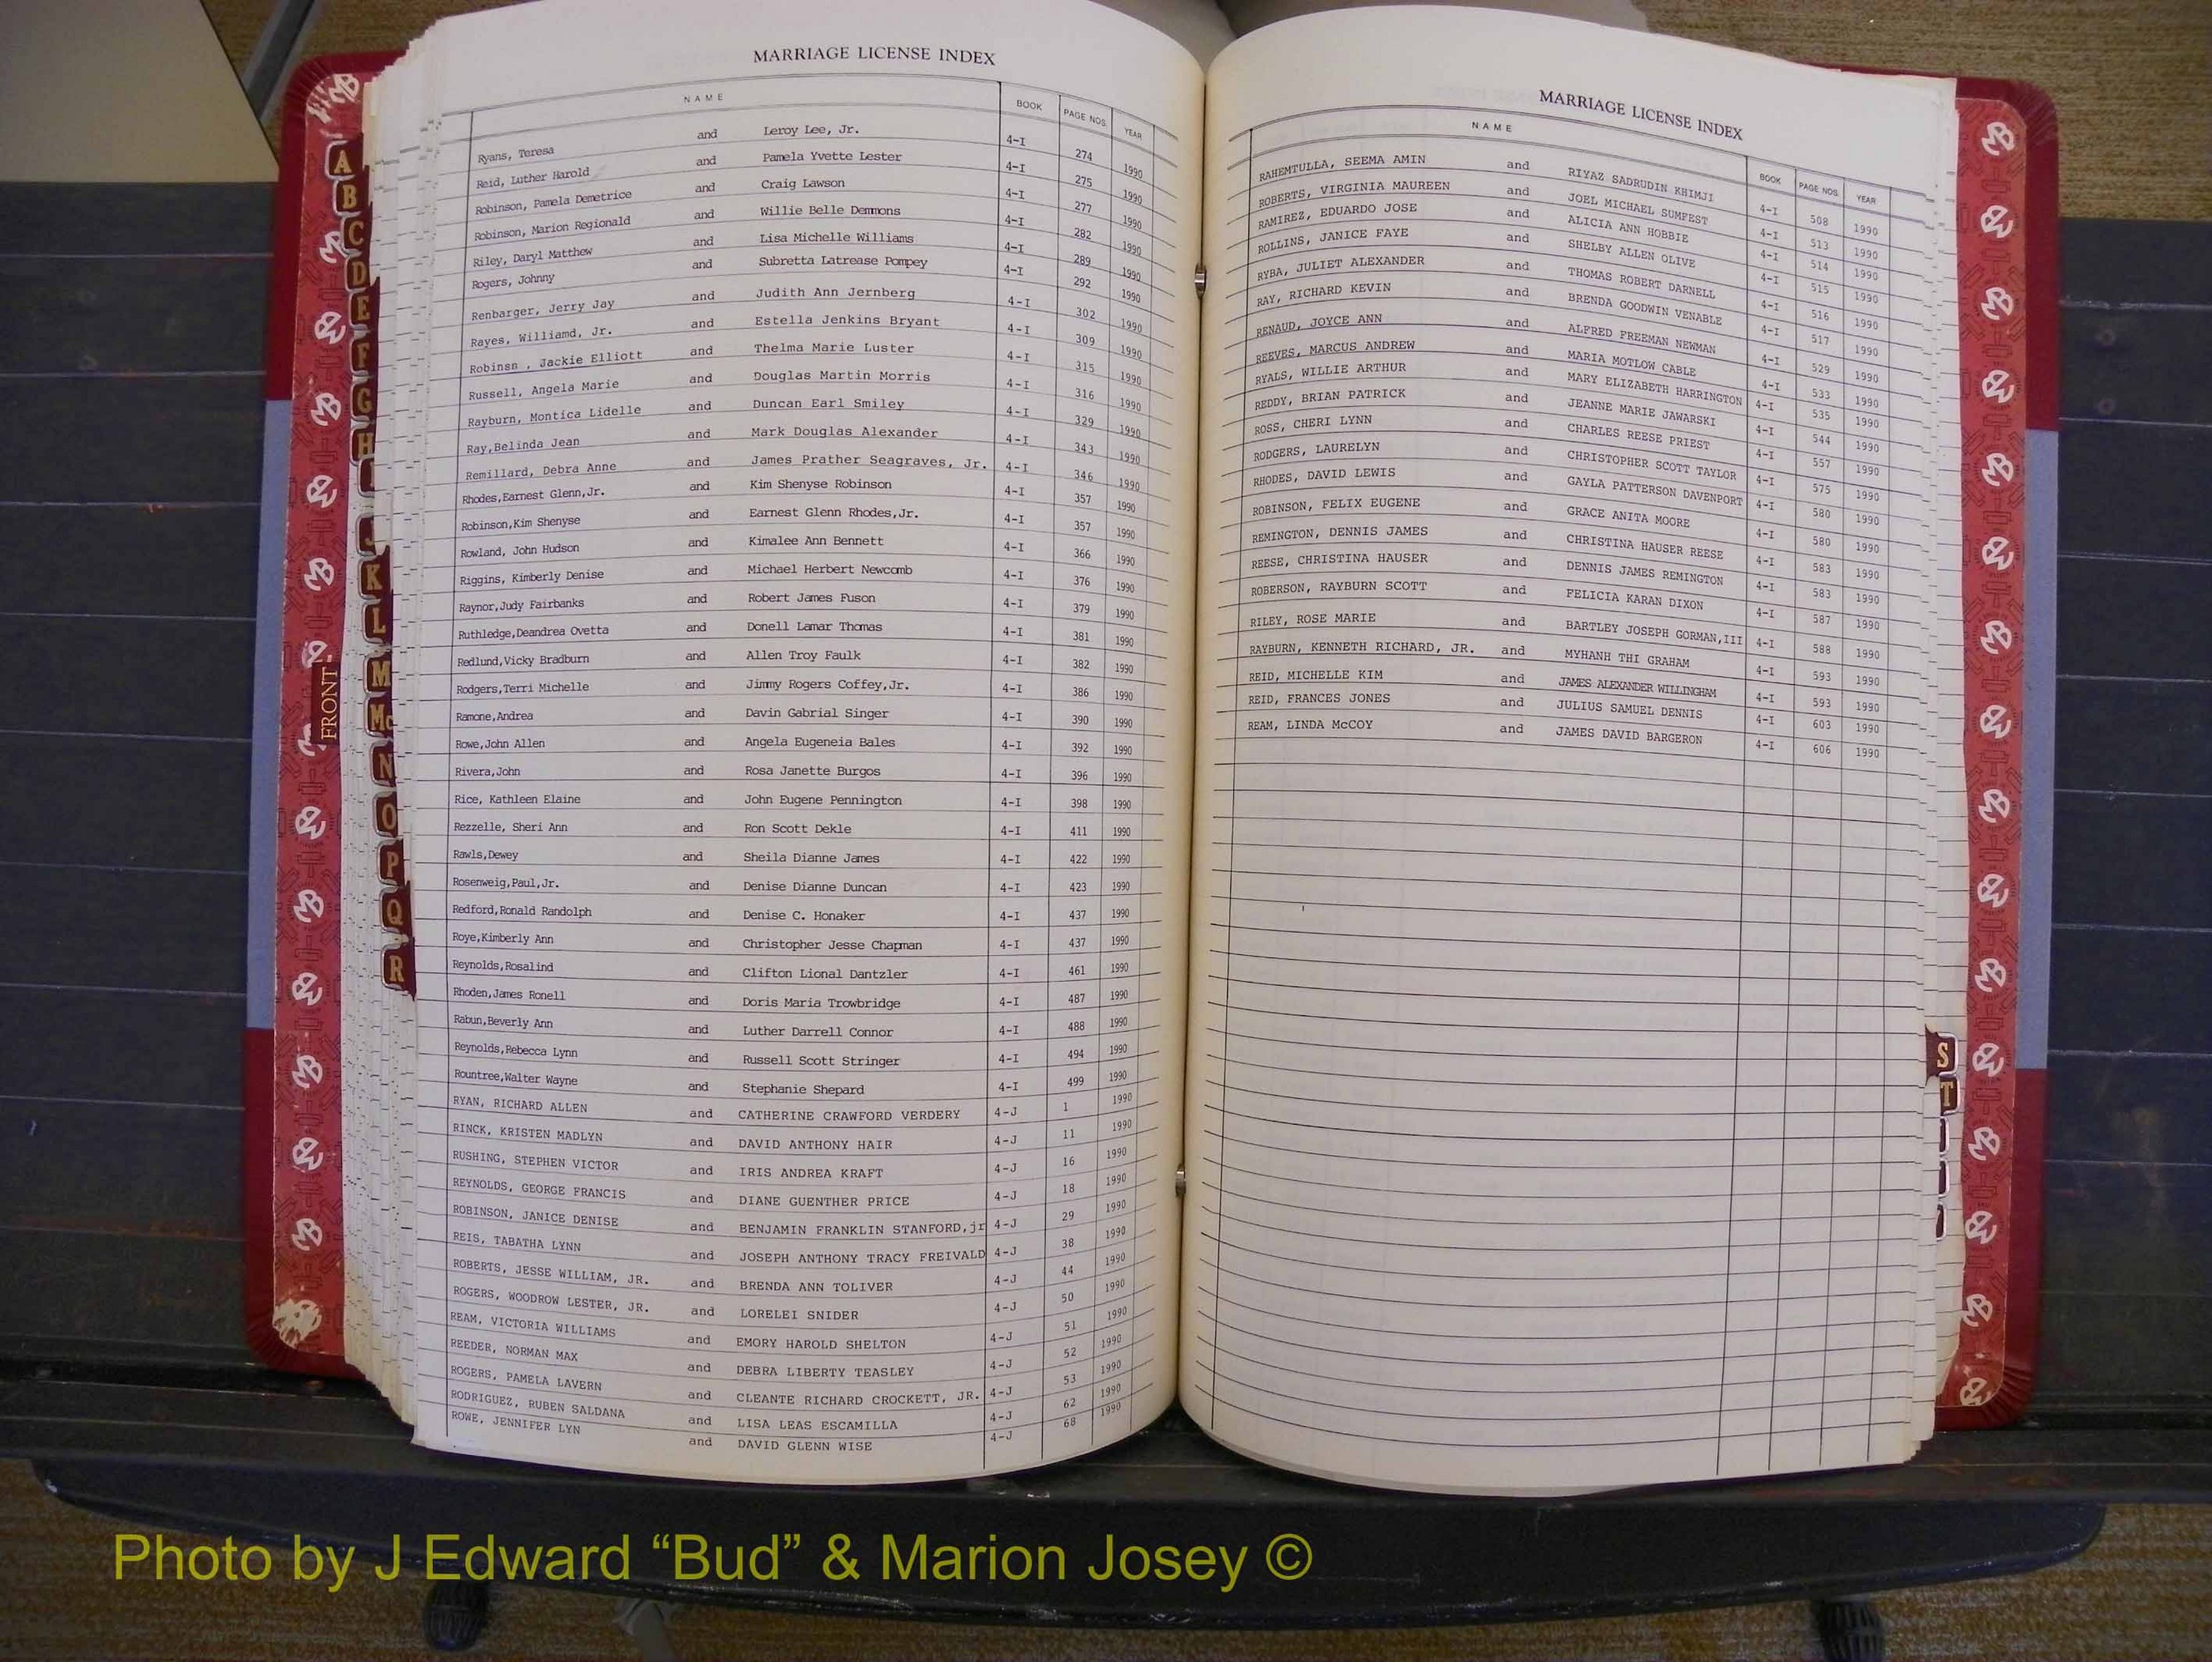 MARRIAGE LICENSE INDEX
NAME BOOK PAGE NOS. YEAR
Ryans, Teresa and Leroy Lee, Jr. 4-I 274 1990
Reid, Luther Harold and Pamela Yvette Lester 4-I 275 1990
Robinson, Pamela Demetrice and Craig Lawson 4-I 277 1990
Robinson, Marion Regionald and Willie Belle Demmons 4-I 282 1990
Riley, Daryl Matthew and Lisa Michelle Williams 4-I 289 1990
Rogers, Johnny and Subretta Latrease Pompey 4-I 292 1990
Renbarger, Jerry Jay and Judith Ann Jernberg 4-I 302 1990
Rayes, Williamd, Jr. and Estella Jenkins Bryant 4-I 309 1990
Robinsn , Jackie Elliott and Thelma Marie Luster 4-I 315 1990
Russell, Angela Marie and Douglas Martin Morris 4-I 316 1990
Rayburn, Montica Lidelle and Duncan Earl Smiley 4-I 329 1990
Ray,Belinda Jean and Mark Douglas Alexander 4-I 343 1990
Remillard, Debra Anne and James Prather Seagraves, Jr. 4-I 346 1990
Rhodes,Earnest Glenn,Jr. and Kim Shenyse Robinson 4-I 357 1990
Robinson,Kim Shenyse and Earnest Glenn Rhodes,Jr. 4-I 357 1990
Rowland, John Hudson and Kimalee Ann Bennett 4-I 366 1990
Riggins, Kimberly Denise and Michael Herbert Newcomb 4-I 376 1990
Raynor,Judy Fairbanks and Robert James Fuson 4-I 379 1990
Ruthledge,Deandrea Ovetta and Donell Lamar Thomas 4-I 381 1990
Redlund,Vicky Bradburn and Allen Troy Faulk 4-I 382 1990
Rodgers,Terri Michelle and Jimmy Rogers Coffey,Jr. 4-I 386 1990
Ramone,Andrea and Davin Gabrial Singer 4-I 390 1990
Rowe,John Allen and Angela Eugeneia Bales 4-I 392 1990
Rivera,John and Rosa Janette Burgos 4-I 396 1990
Rice, Kathleen Elaine and John Eugene Pennington 4-I 398 1990
Rezzelle, Sheri Ann and Ron Scott Dekle 4-I 411 1990
Rawls,Dewey and Sheila Dianne James 4-I 422 1990
Rosenweig,Paul,Jr. and Denise Dianne Duncan 4-I 423 1990
Redford,Ronald Randolph and Denise C. Honaker 4-I 437 1990
Roye,Kimberly Ann and Christopher Jesse Chapman 4-I 437 1990
Reynolds,Rosalind and Clifton Lional Dantzler 4-I 461 1990
Rhoden,James Ronell and Doris Maria Trowbridge 4-I 487 1990
Rabun,Beverly Ann and Luther Darrell Connor 4-I 488 1990
Reynolds,Rebecca Lynn and Russell Scott Stringer 4-I 494 1990
Rountree,Walter Wayne and Stephanie Shepard 4-I 499 1990
RYAN, RICHARD ALLEN and CATHERINE CRAWFORD VERDERY 4-J 1 1990
RINCK, KRISTEN MADLYN and DAVID ANTHONY HAIR 4-J 11 1990
RUSHING, STEPHEN VICTOR and IRIS ANDREA KRAFT 4-J 16 1990
REYNOLDS, GEORGE FRANCIS and DIANE GUENTHER PRICE 4-J 18 1990
ROBINSON, JANICE DENISE and BENJAMIN FRANKLIN STANFORD,jr 4-J 29 1990
REIS, TABATHA LYNN and JOSEPH ANTHONY TRACY FREIVALD 4-J 38 1990
ROBERTS, JESSE WILLIAM, JR. and BRENDA ANN TOLIVER 4-J 44 1990
ROGERS, WOODROW LESTER, JR. and LORELEI SNIDER 4-J 50 1990
REAM, VICTORIA WILLIAMS and EMORY HAROLD SHELTON 4-J 51 1990
REEDER, NORMAN MAX and DEBRA LIBERTY TEASLEY 4-J 52 1990
ROGERS, PAMELA LAVERN and CLEANTE RICHARD CROCKETT, JR. 4-J 53 1990
RODRIGUEZ, RUBEN SALDANA and LISA LEAS ESCAMILLA 4-J 62 1990
ROWE, JENNIFER LYN and DAVID GLENN WISE 4-J 68 1990
MARRIAGE LICENSE INDEX
NAME BOOK PAGE NOS. YEAR
RAHEMTULLA, SEEMA AMIN and RIYAZ SADRUDIN KHIMJI 4-I 508 1990
ROBERTS, VIRGINIA MAUREEN and JOEL MICHAEL SUMFEST 4-I 513 1990
RAMIREZ, EDUARDO JOSE and ALICIA ANN HOBBIE 4-I 514 1990
ROLLINS, JANICE FAYE and SHELBY ALLEN OLIVE 4-I 515 1990
RYBA, JULIET ALEXANDER and THOMAS ROBERT DARNELL 4-I 516 1990
RAY, RICHARD KEVIN and BRENDA GOODWIN VENABLE 4-I 517 1990
RENAUD, JOYCE ANN and ALFRED FREEMAN NEWMAN 4-I 529 1990
REEVES, MARCUS ANDREW and MARIA MOTLOW CABLE 4-I 533 1990
RYALS, WILLIE ARTHUR and MARY ELIZABETH HARRINGTON 4-I 535 1990
REDDY, BRIAN PATRICK and JEANNE MARIE JAWARSKI 4-I 544 1990
ROSS, CHERI LYNN and CHARLES REESE PRIEST 4-I 557 1990
RODGERS, LAURELYN and CHRISTOPHER SCOTT TAYLOR 4-I 575 1990
RHODES, DAVID LEWIS and GAYLA PATTERSON DAVENPORT 4-I 580 1990
ROBINSON, FELIX EUGENE and GRACE ANITA MOORE 4-I 580 1990
REMINGTON, DENNIS JAMES and CHRISTINA HAUSER REESE 4-I 583 1990
REESE, CHRISTINA HAUSER and DENNIS JAMES REMINGTON 4-I 583 1990
ROBERSON, RAYBURN SCOTT and FELICIA KARAN DIXON 4-I 587 1990
RILEY, ROSE MARIE and BARTLEY JOSEPH GORMAN,III 4-I 588 1990
RAYBURN, KENNETH RICHARD, JR. and MYHANH THI GRAHAM 4-I 593 1990
REID, MICHELLE KIM and JAMES ALEXANDER WILLINGHAM 4-I 593 1990
REID, FRANCES JONES and JULIUS SAMUEL DENNIS 4-I 603 1990
REAM, LINDA McCOY and JAMES DAVID BARGERON 4-I 606 1990
A
B
C
D
E
F
G
H
I
J
K
L
M
Mc
N
O
P
Q
R
FRONT
S
T
Photo by J Edward “Bud” & Marion Josey ©